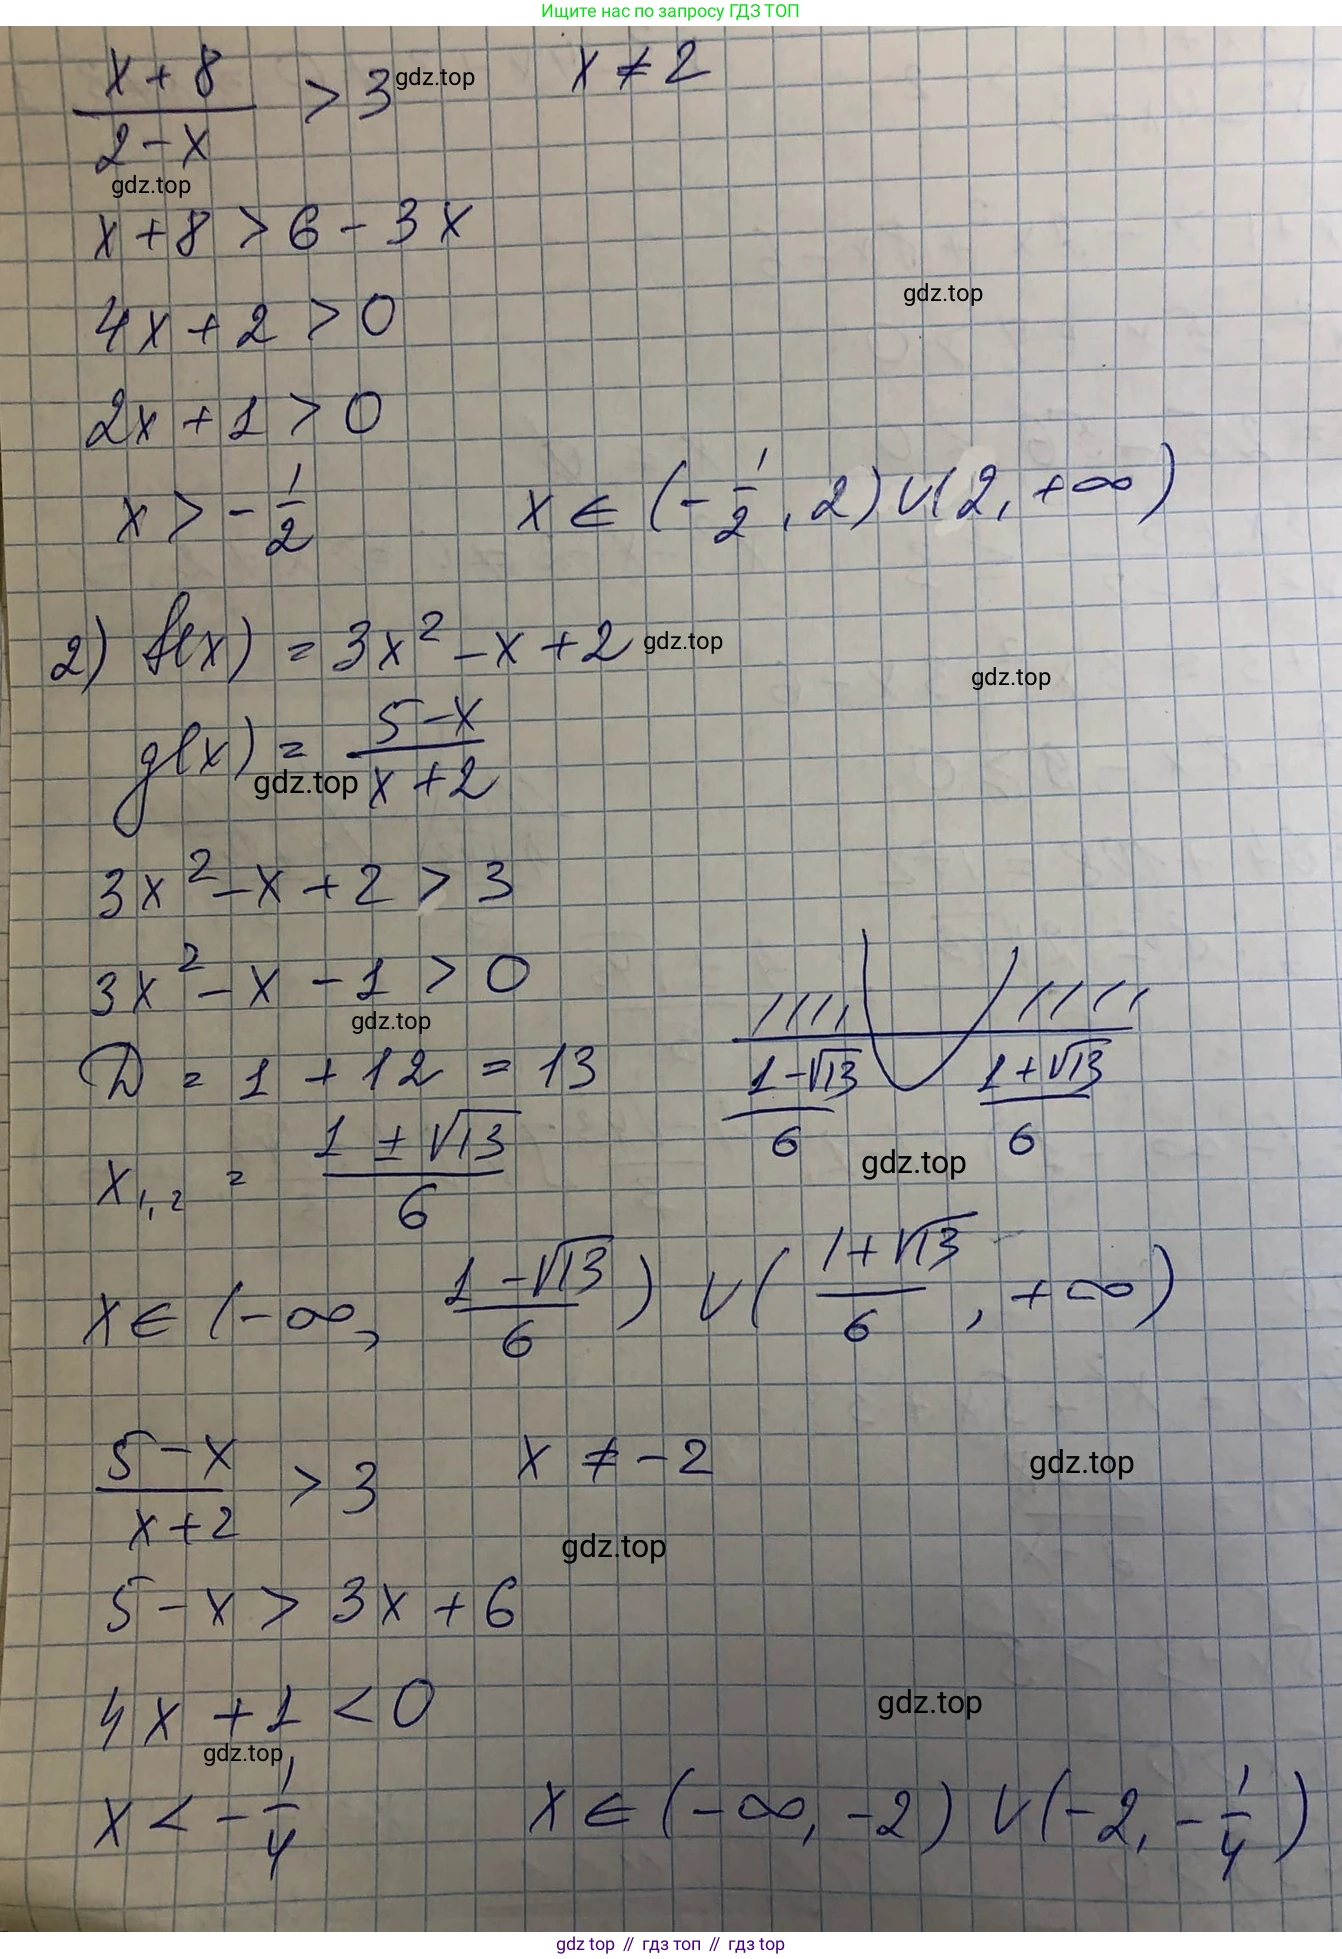 Ищите нас по запросу ГДЗ ТОП
(x+8)/(2-x) > 3 gdz.top x ≠ 2
gdz.top
x+8 > 6-3x
gdz.top
4x+2 > 0
2x+1 > 0
x > -1/2 x ∈ (-1/2, 2) ∪ (2, +∞)
2) f(x) = 3x²-x+2 gdz.top
gdz.top
g(x) = (5-x)/(x+2)
gdz.top
3x²-x+2 > 3
3x²-x-1 > 0
gdz.top
D = 1+12 = 13
(1-√13)/6 (1+√13)/6
gdz.top
x₁,₂ = (1±√13)/6
x ∈ (-∞, (1-√13)/6) ∪ ((1+√13)/6, +∞)
(5-x)/(x+2) > 3 x ≠ -2
gdz.top
gdz.top
5-x > 3x+6
4x+1 < 0
gdz.top
gdz.top
x < -1/4 x ∈ (-∞, -2) ∪ (-2, -1/4)
gdz top // гдз топ // gdz top